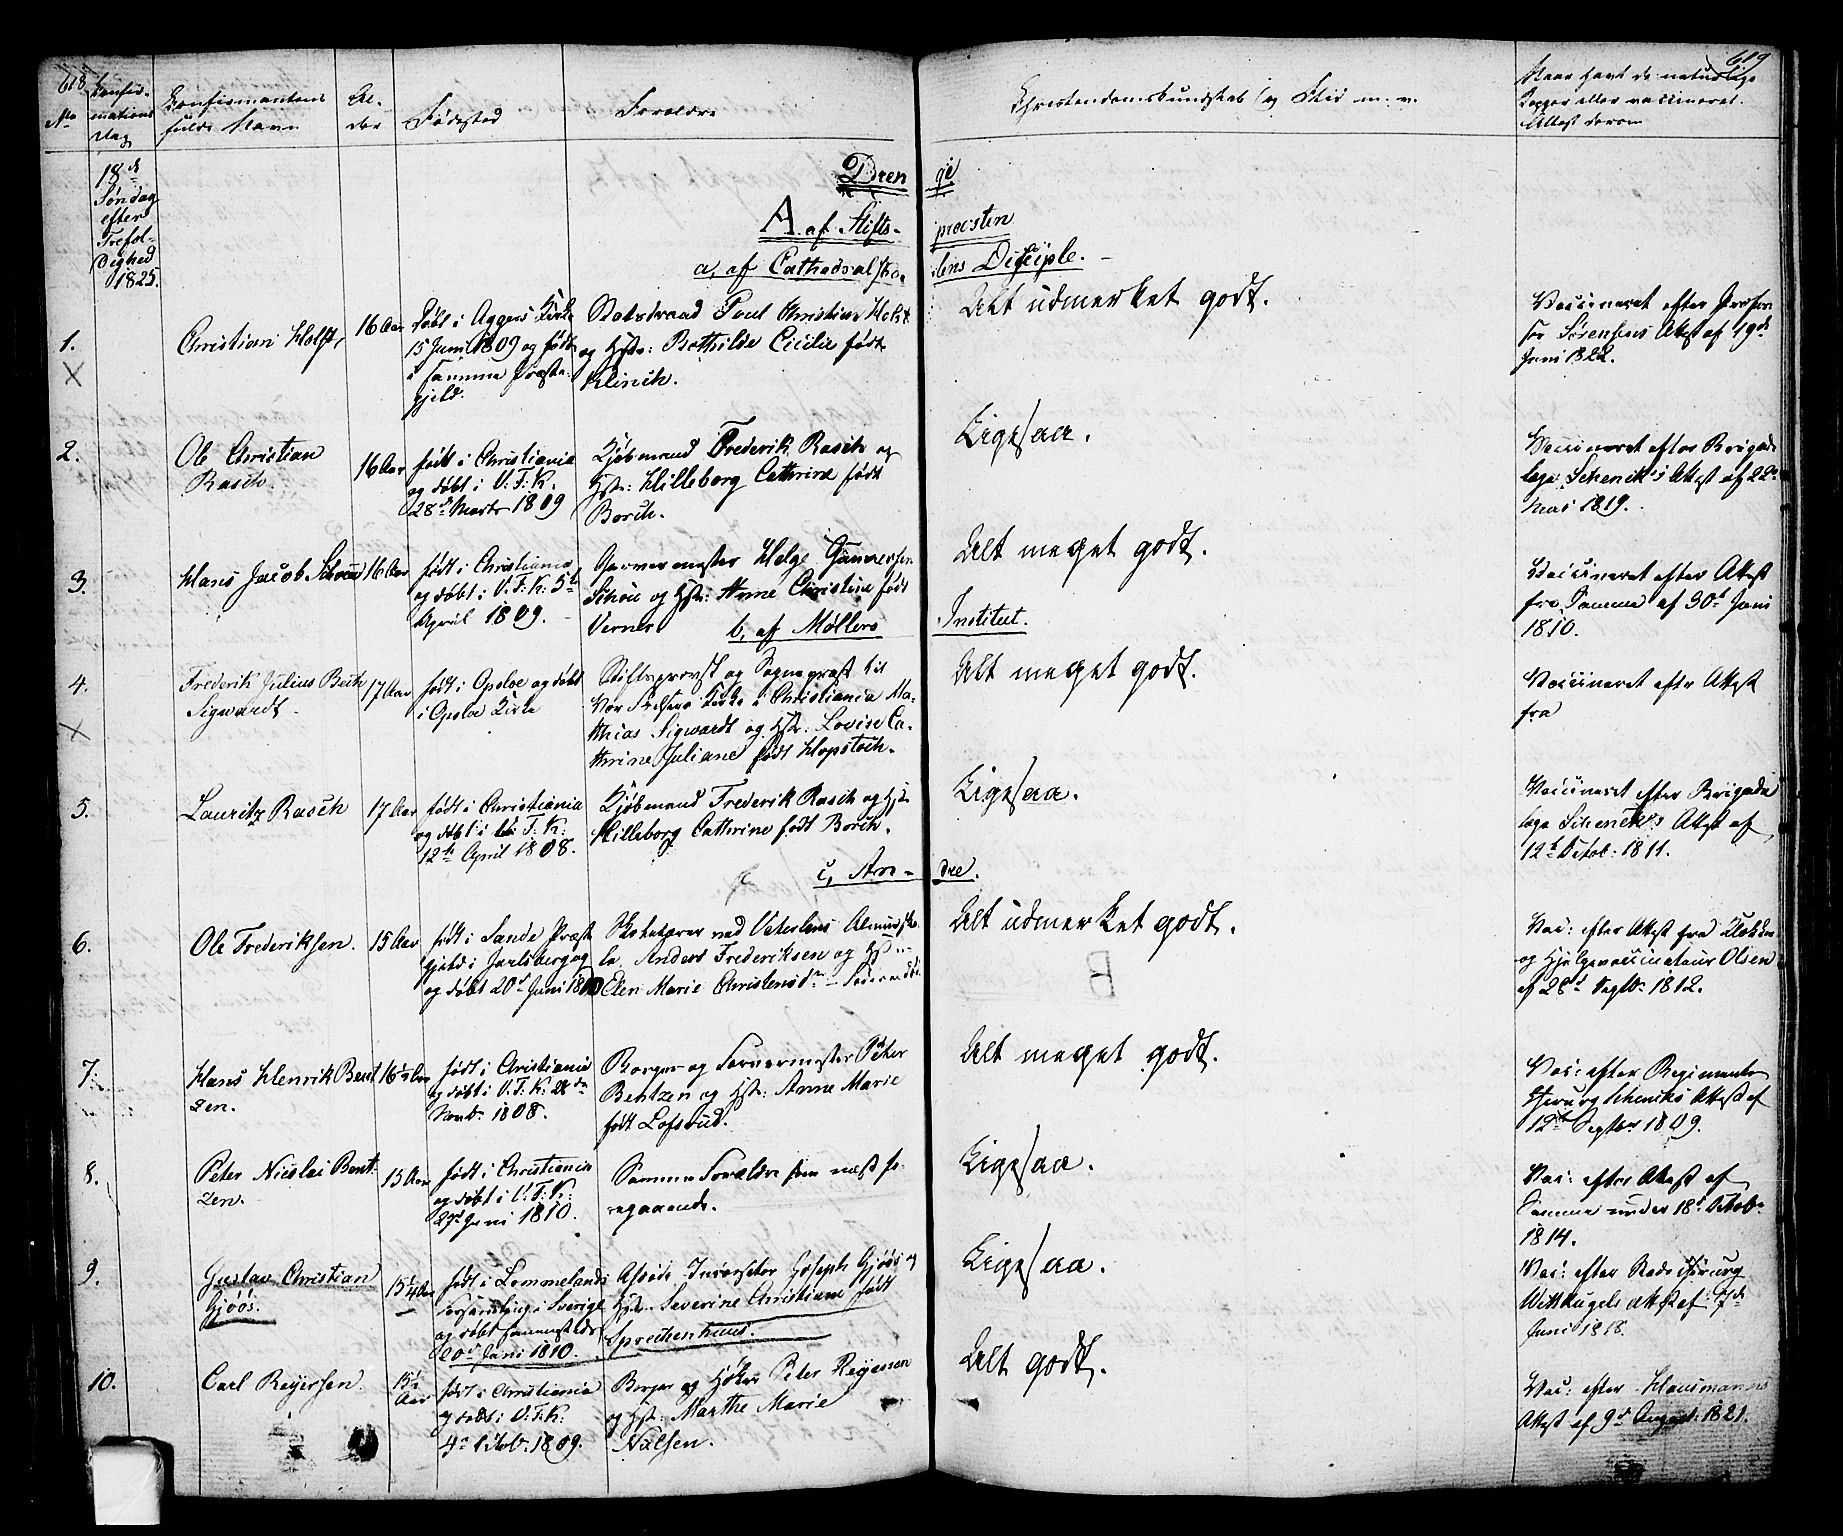 618.
619
No
Confir-
mations
Dag
Confirmantens
fulde Navn
Al-
der
Fødested
Forældre
Christendomskundskab og Flid m. v.
Naar havt de naturlige
Kopper eller vaccineret.
Attest derom
18de
Søndag
efter
Trefol-
dighed
1825.
Drenge
A. af Stiftsprovsten
a, af Cathedralskolens Disciple.
1.
Christian Holst,
16 Aar
døbt i Aggers Kirke
15 Juni 1809 og født
i samme Præste-
gjeld.
Statsraad Poul Christian Holst
og Hstr: Bothilde Cecilie født
Klinch.
Alt udmerket godt.
Vaccineret efter Profes-
sor Sørensens Attest af 19de
Juni 1822.
2.
Ole Christian
Rasch.
16 Aar
født i Christiania
og døbt i V: F: K.
28de Marts 1809
Kjøbmand Frederik Rasch og
Hstr: Hilleborg Cathrine født
Borch.
Ligesaa.
Vaccineret efter Brigade
læge Schencks Attest af 22de
Mai 1819.
3.
Hans Jacob Schou
16 Aar
født i Christiania
og døbt i V: F: K. 5te
April 1809.
Garvermester Helge Gundersen
Schou og Hstr: Anne Christine født
Verner
Alt meget godt.
Vaccineret efter Attest
fra Samme af 30d Juni
1810.
b, af Møllers Institut.
4.
Frederik Julius Bech
Sigwardt.
17 Aar
født i Opsloe og døbt
i Opsloe Kirke
Stiftsprovst og Sognepræst til
Vor Frelsers Kirke i Christiania Ma-
thias Sigwardt og Hstr: Lovise Ca-
thrine Juliane født Klopstock.
Alt meget godt.
Vaccineret efter Attest
fra
5.
Lauritz Rasch
17 Aar
født i Christiania
og døbt i V: F: K:
12te April 1808.
Kjøbmand Frederik Rasch og Hstr
Hilleborg Cathrine født Borch.
Ligesaa.
Vaccineret efter Brigade
læge Schencks Attest af
12te Octob: 1811.
c, Andre.
6.
Ole Frederiksen.
15 Aar
født i Sande Præste
gjeld i Jarlsberg og
og døbt 20d Juni 1810
ved Vaterlens Almueskole
Anders Frederiksen og Hstr
Elen Marie Christensdr
Alt udmerket godt.
Vac: efter Attest fra Klokker
og Hjelpevaccinateur Olsen
af 28d Septbr. 1812.
7.
Hans Henrik Bent
zen.
16½ Aar
født i Christiania
og døbt i V: F: K: 28de
Novbr. 1808.
Borger og Farvermester Peter
Bentzen og Hstr: Anne Marie
født Lofsrud.
Alt meget godt.
Vac: efter Regiments
chirurg Schencks Attest af
12te Septbr 1809.
8.
Peter Nicolai Bent
zen.
15 Aar
født i Christiania
og døbt i V: F: K:
27de Juni 1810.
Samme Forældre som næst fo-
regaaende.
Ligesaa.
Vac: efter Attest af
Samme under 18d Octobr
1814.
9.
Gustav Christian
Gjöös.
15¼ Aar
født i Lommelands
forsamling i Sverige
og døbt sammesteds
20d Juni 1810.
Joseph Gjöös og
Hstr. Severine Christiane født
Spreckenhuus.
Ligesaa.
Vac: efter Radechirurg
Wittkugels Attest af 7de
Juni 1818.
10.
Carl Reyersen
15½
Aar
født i Christiania
og døbt i V: F: K:
4de Octob. 1809.
Borger og Høker Peter Reyersen
og Hstr: Marthe Marie
Nielsen.
Alt godt.
Vac: efter Hausmanns
Attest af 9d August: 1821.